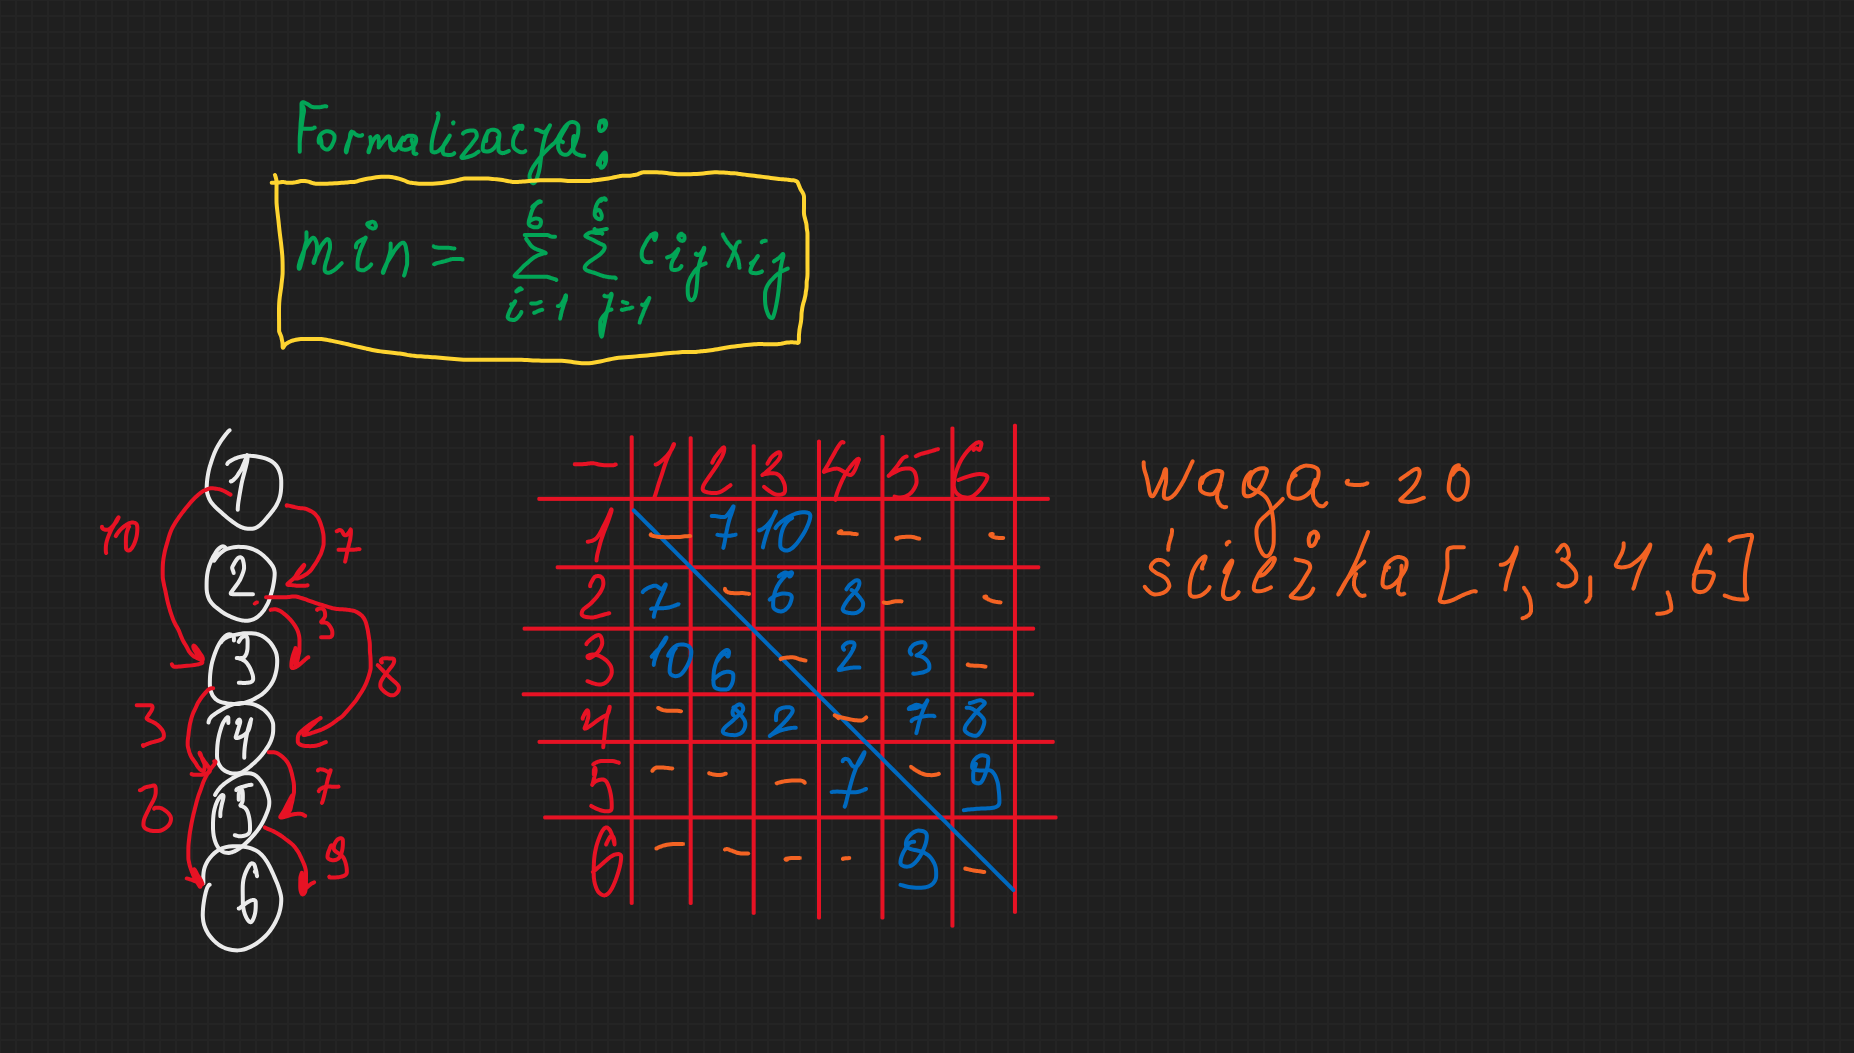 Formalizacja:
min = 6 6
∑ ∑ cij xij
i=1 j=1
1
10 7
2
3
3 8
3 4
7
3 5
9
6
— 1 2 3 4 5 6
1 — 7 10 - - -
2 7 - 6 8 - -
3 10 6 - 2 3 -
4 - 8 2 - 7 8
5 - - - 7 - 9
6 - - - - 9 -
waga - 20
ścieżka [1,3,4,6]